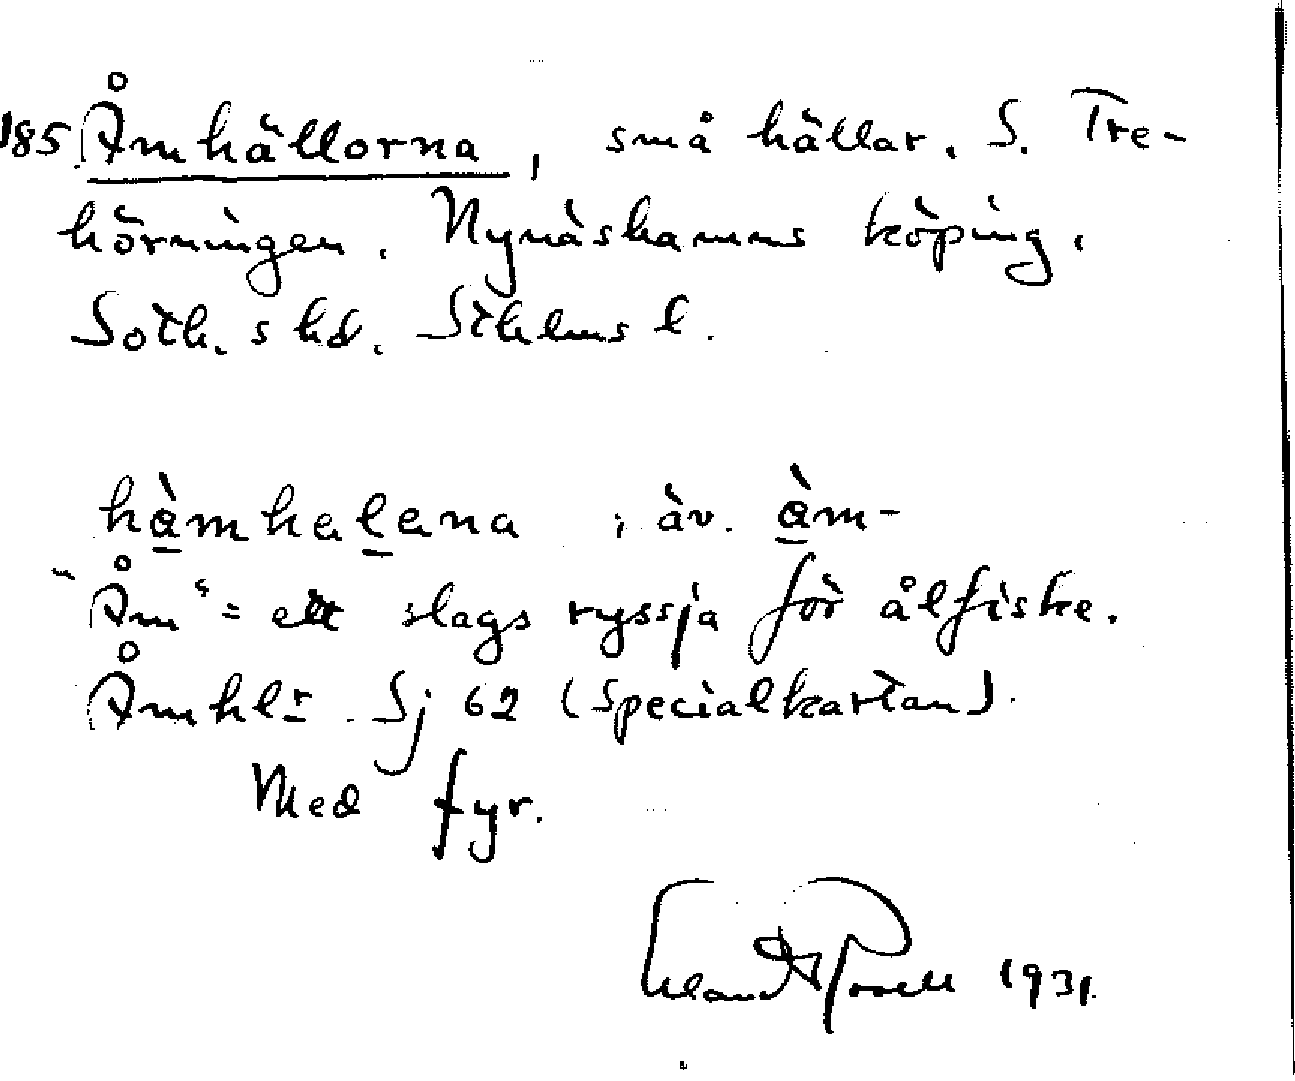 185. Åmhällorna, små hällar. S. Tre-
hörningen. Nynäshamns köping.
Soth. s hd. Sthlms l.
hà̱mhaḻana ; äv. à̱m-
"Åm" = ett slags ryssja för ålfiske.
Åmhlr. Sj 62 (Specialkartan).
Med fyr.
1931.